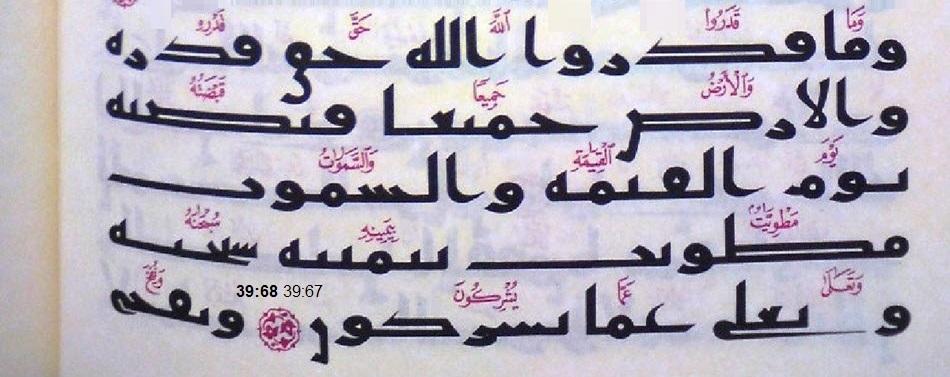 وَمَا قَدَرُوا اللَّهَ حَقَّ قَدْرِهِ
وما قدروا الله حق قدره
وَالْأَرْضُ جَمِيعًا قَبْضَتُهُ
والارض جميعا قبضته
يَوْمَ الْقِيَٰمَةِ وَالسَّمَٰوَٰتُ
يوم القيمه والسموت
مَطْوِيَّٰتٌ بِيَمِينِهِ سُبْحَٰنَهُ
مطويت بيمينه سبحنه
وَتَعَٰلَىٰ عَمَّا يُشْرِكُونَ 39:67 39:68 وَنُفِخَ
وتعلى عما يشركون ونفخ